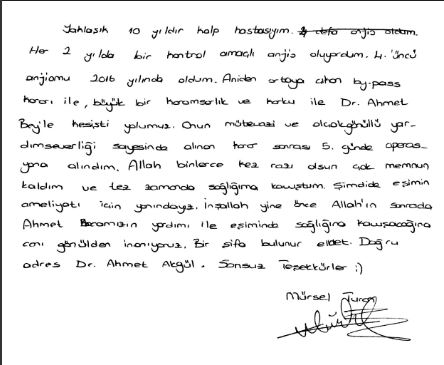 Yaklaşık 10 yıldır kalp hastasıyım. 4 defa anjio oldum.
Her 2 yılda bir kontrol amaçlı anjio oluyordum. 4.'üncü
anjiomu 2016 yılında oldum. Aniden ortaya çıkan by-pass
kararı ile, büyük bir karamsarlık ve korku ile Dr. Ahmet
Bey'le kesişti yolumuz. Onun mütevazi ve alçakgönüllü yar-
dımseverliği sayesinde alınan karar sonrası 5. günde operas-
yona alındım. Allah binlerce kez razı olsun çok memnun
kaldım ve tez zamanda sağlığıma kavuştum. Şimdide eşimin
ameliyatı için yanındayız. İnşallah yine önce Allah'ın sonrada
Ahmet Hocamızın yardımı ile eşiminde sağlığına kavuşacağına
canı gönülden inanıyoruz. Bir şifa bulunur elbet. Doğru
adres Dr. Ahmet Akgül. Sonsuz Teşekkürler :)
Mürsel Turan